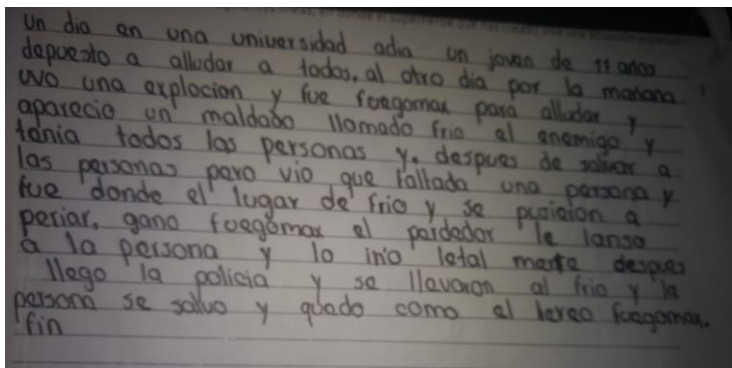 Un dia en una universidad adia un joven de 11 años
depuesto a alludar a todos, al otro dia por la mañana
uvo una explocion y fue fuegomax para alludar y
aparecio un maldado llamado frio el enemigo y
tenia todos las personas y, despues de salvar a
las personas pero vio que faltada una persona y
fue donde el lugar de frio y se pusieron a
periar, gano fuegomax el perdedor le lanso
a la persona y lo irio letal merte despues
llego la policia y se llevaron al frio y la
persona se salvo y quedo como el lereo fuegomax.
fin